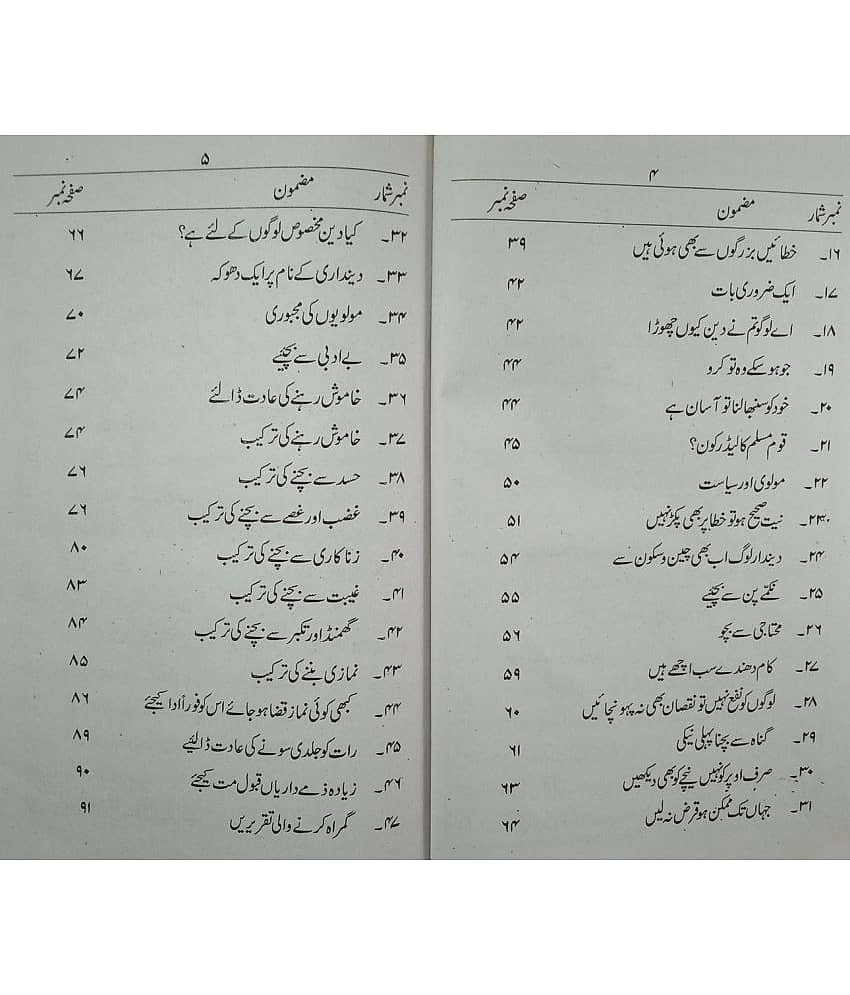 ۴
نمبر شمار مضمون صفحہ نمبر
۱۶۔ خطائیں بزرگوں سے بھی ہوئی ہیں ۳۹
۱۷۔ ایک ضروری بات ۴۲
۱۸۔ اے لوگو تم نے دین کیوں چھوڑا ۴۲
۱۹۔ جو ہو سکے وہ تو کرو ۴۴
۲۰۔ خود کو سنبھالنا تو آسان ہے ۴۴
۲۱۔ قوم مسلم کا لیڈر کون؟ ۴۵
۲۲۔ مولوی اور سیاست ۵۰
۲۳۔ نیت صحیح ہو تو خطا پر بھی پکڑ نہیں ۵۱
۲۴۔ دیندار لوگ اب بھی چین و سکون سے ۵۴
۲۵۔ نکمّے پن سے بچیے ۵۵
۲۶۔ محتاجی سے بچو ۵۶
۲۷۔ کام دھندے سب اچھے ہیں ۵۹
۲۸۔ لوگوں کو نفع نہیں تو نقصان بھی نہ پہونچائیں ۶۰
۲۹۔ گناہ سے بچنا پہلی نیکی ۶۱
۳۰۔ صرف اوپر کو نہیں نیچے کو بھی دیکھیں ۶۳
۳۱۔ جہاں تک ممکن ہو قرض نہ لیں ۶۴
۵
نمبر شمار مضمون صفحہ نمبر
۳۲۔ کیا دین مخصوص لوگوں کے لئے ہے؟ ۶۶
۳۳۔ دینداری کے نام پر ایک دھوکہ ۶۷
۳۴۔ مولویوں کی مجبوری ۷۰
۳۵۔ بے ادبی سے بچئیے ۷۲
۳۶۔ خاموش رہنے کی عادت ڈالئے ۷۴
۳۷۔ خاموش رہنے کی ترکیب ۷۴
۳۸۔ حسد سے بچنے کی ترکیب ۷۶
۳۹۔ غضب اور غصے سے بچنے کی ترکیب ۷۶
۴۰۔ زنا کاری سے بچنے کی ترکیب ۸۰
۴۱۔ غیبت سے بچنے کی ترکیب ۸۳
۴۲۔ گھمنڈ اور تکبر سے بچنے کی ترکیب ۸۴
۴۳۔ نمازی بننے کی ترکیب ۸۵
۴۴۔ کبھی کوئی نماز قضا ہو جائے اس کو فوراً ادا کیجئے ۸۶
۴۵۔ رات کو جلدی سونے کی عادت ڈالئیے ۸۹
۴۶۔ زیادہ ذمے داریاں قبول مت کیجئے ۹۰
۴۷۔ گمراہ کرنے والی تقریریں ۹۱